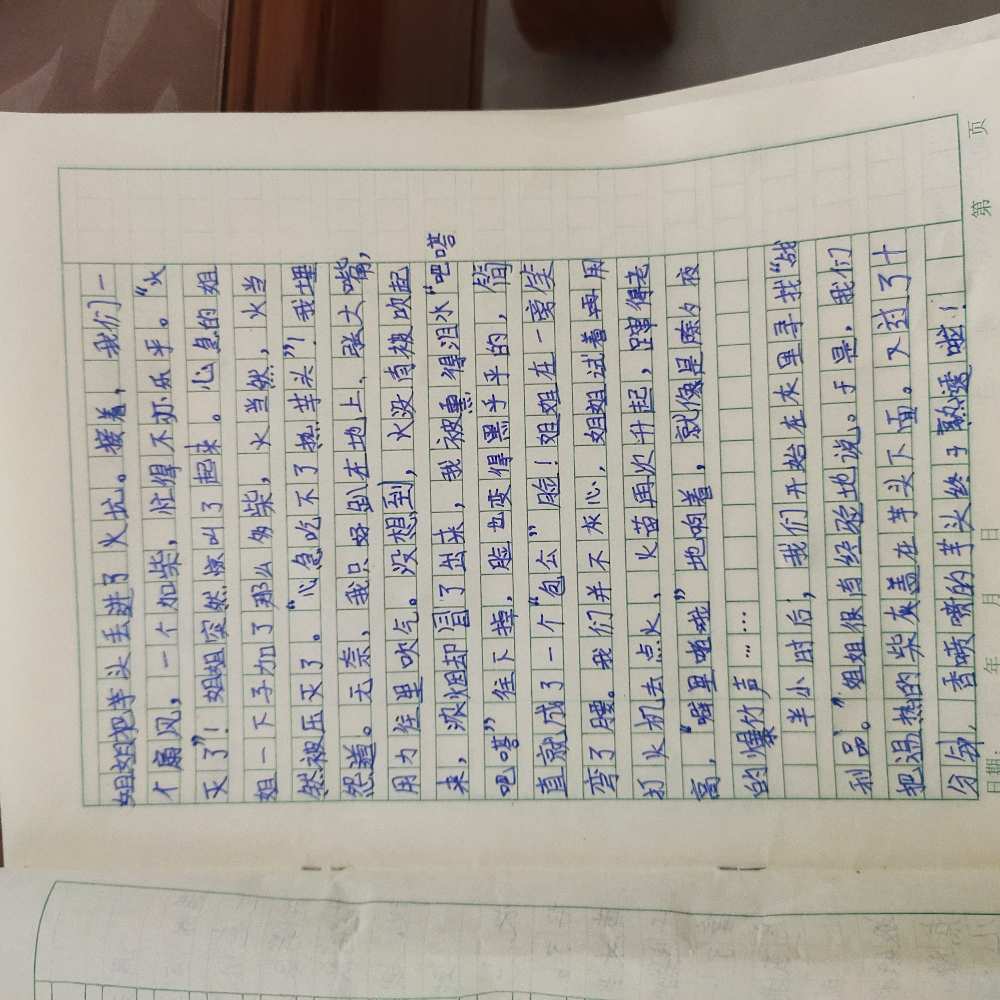 姐姐把芋头丢进了火坑。接着，我们一
个扇风，一个加柴，忙得不亦乐乎。“火
灭了”！姐姐突然惊叫了起来。心急的姐
姐一下子加了那么多柴，火当然，火当
然被压灭了。“心急吃不了热芋头”！我埋
怨道。无奈，我只好趴在地上，张大嘴，
用力往里吹气。没想到，火没有被吹起
来，浓烟却冒了出来，我被熏得泪水“吧嗒
吧嗒”往下掉，脸也变得黑乎乎的，简
直就成了一个“包公”脸！姐姐在一旁笑
弯了腰。我们并不灰心，姐姐试着再用
打火机去点火，火苗再次升起，蹿得老
高，“噼里啪啦”地响着，就像是除夕夜
的爆竹声……
半小时后，我们开始在灰里寻找“战
利品。”姐姐很有经验地说。于是，我们
把滚热的柴灰盖在芋头下面。又过了十
分钟，香喷喷的芋头终于熟透啦！
日期： 年 月 日
第 页